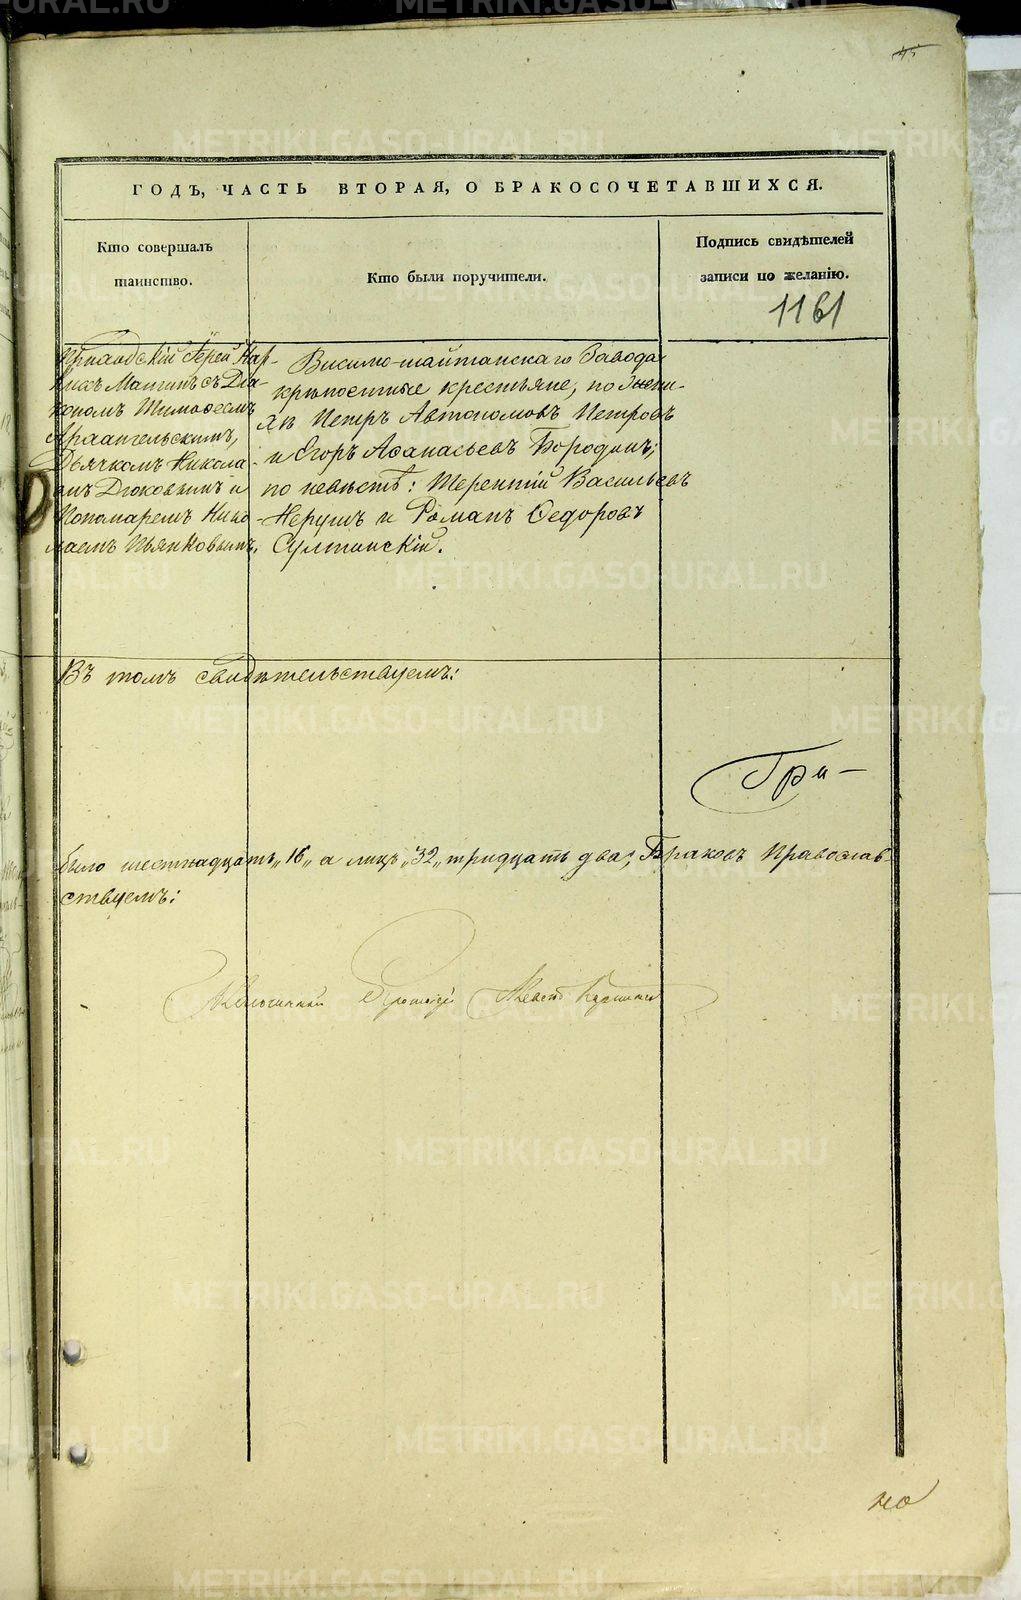 ГОДЪ, ЧАСТЬ ВТОРАЯ, О БРАКОСОЧЕТАВШИХСЯ.
Кто совершалъ
таинство.
Кто были поручители.
Подпись свидѣтелей
записи по желанію.
1161
Приходскій Іерей Нар-
кисъ Мамин съ Діа-
кономъ Тимофеемъ
Архангельскимъ,
Дьячкомъ Никола-
емъ Дюковымъ и
Пономаремъ Нико
лаемъ Пьянковымъ.
Висимо-шайтанскаго Завода
крѣпостные крестьяне, по жени-
хѣ Петръ Автономовъ Петровъ
и Егоръ Аѳанасьевъ Бородинъ;
по невѣстѣ: Терентій Васильевъ
и Романъ Ѳедоровъ
Въ томъ свидѣтельствуемъ:
Гри-
было шестнадцать „16„ а лицъ „32„ тридцать два; Браковъ Православ-
ствуемъ:
но
METRIKI.GASO-URAL.RU